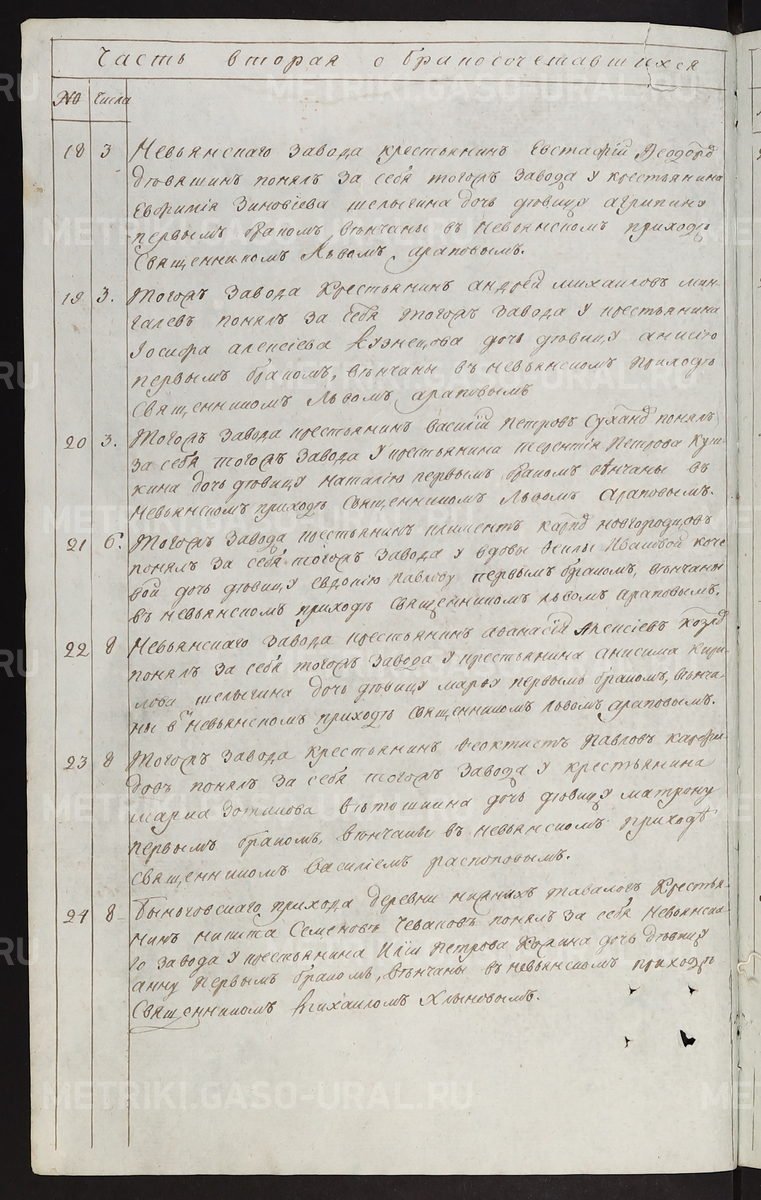 Часть вторая о бракосочетавшихся
№ Числа
18 3 Невьянскаго завода крестьянинъ Евстафій Ѳеодоровъ
дѣвяшинъ понялъ за себя тогожъ завода у крестьянина
Евфимія Зиновіева шелыгина дочь дѣвицу агрипину
первымъ бракомъ, вѣнчаны въ Невьянскомъ приходѣ
Священникомъ Львомъ араповымъ.
19 3. Тогожъ Завода Крестьянинъ андрей михаиловъ мин
галевъ понялъ за себя тогожъ завода у крестьянина
Іосифа алексіева Кузнецова дочь дѣвицу анисію
первымъ бракомъ, вѣнчаны въ невьянскомъ приходѣ
Священникомъ Львомъ араповымъ
20 3. Тогожъ Завода крестьянинъ василій петровъ понялъ
за себя тогожъ завода у крестьянина терентія Петрова
кина дочь дѣвицу наталію первымъ бракомъ вѣнчаны въ
Невьянскомъ приходѣ Священникомъ Львомъ Араповымъ.
21 6. Тогожъ Завода крестьянинъ климентъ новгородцовъ
понялъ за себя тогожъ завода у вдовы Ивановой коче
вой дочь дѣвицу Евдокію павлову первымъ бракомъ, вѣнчаны
въ невьянскомъ приходѣ священникомъ львомъ араповымъ.
22 8 Невьянскаго завода крестьянинъ аѳанасій Алексіевъ
понялъ за себя тогожъ завода у крестьянина анисима Кири
лова шелыгина дочь дѣвицу марью первымъ бракомъ, вѣнча-
ны въ Невьянскомъ приходѣ священникомъ львомъ араповымъ.
23 8 Тогожъ завода крестьянинъ Ѳеоктистъ Павловъ
довъ понялъ за себя тогожъ завода у крестьянина
марка Зотикова вѣтошкина дочь дѣвицу матрону
первымъ бракомъ, вѣнчаны въ невьянскомъ приходѣ
священникомъ Василіемъ распоповымъ.
24 8 Быньговскаго прихода деревни нижнихъ таваложъ Крестья-
нинъ никита Семеновъ Чеваковъ понялъ за себя Невьянска-
го завода у крестьянина Иліи Петрова дочь дѣвицу
анну первымъ бракомъ, вѣнчаны въ невьянскомъ приходѣ
Священникомъ Михаиломъ Хлыновымъ.
METRIKI.GASO-URAL.RU